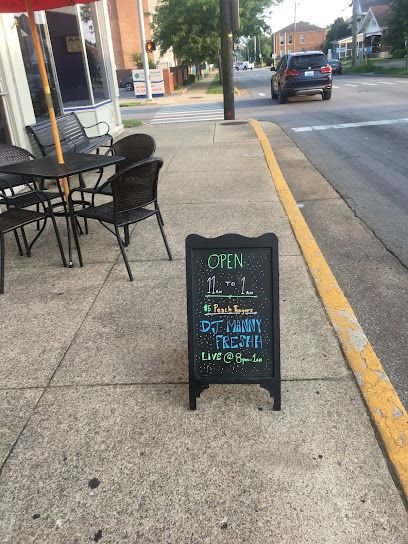 OPEN
11AM TO 1AM
$5 Peach Ringerz
DJ MANNY
FRESHH
LIVE @ 8pm-1AM